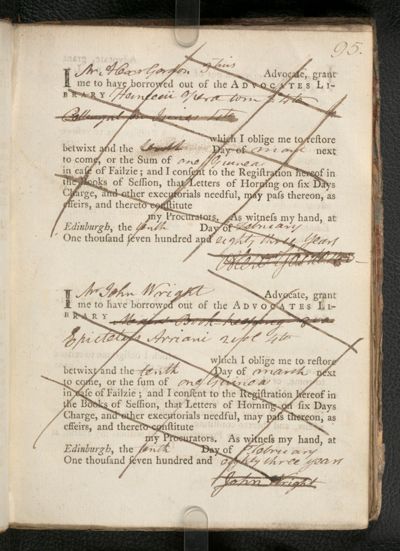 95.
I Mr
Advocate, grant
me to have borrowed out of the ADVOCATES LI-
BRARY
which I oblige me to reſtore
betwixt and the tenth Day of next
to come, or the Sum of one Guinea
in caſe of Failzie; and I conſent to the Regiſtration hereof in
the Books of Seſſion, that Letters of Horning on ſix Days
Charge, and other executorials needful, may paſs thereon, as
effeirs, and thereto conſtitute
my Procurators. As witneſs my hand, at
Edinburgh, the tenth Day of February
One thouſand ſeven hundred and eighty three Years
I Mr John Wright Advocate, grant
me to have borrowed out of the ADVOCATES LI-
BRARY
Epictetus Arriani 2 vol 4to
which I oblige me to reſtore
betwixt and the tenth Day of march next
to come, or the ſum of one Guinea
in caſe of Failzie; and I conſent to the Regiſtration hereof in
the Books of Seſſion, that Letters of Horning on ſix Days
Charge, and other executorials needful, may paſs thereon, as
effeirs, and thereto conſtitute
my Procurators. As witneſs my hand, at
Edinburgh, the tenth Day of February
One thouſand ſeven hundred and eighty three years
John Wright